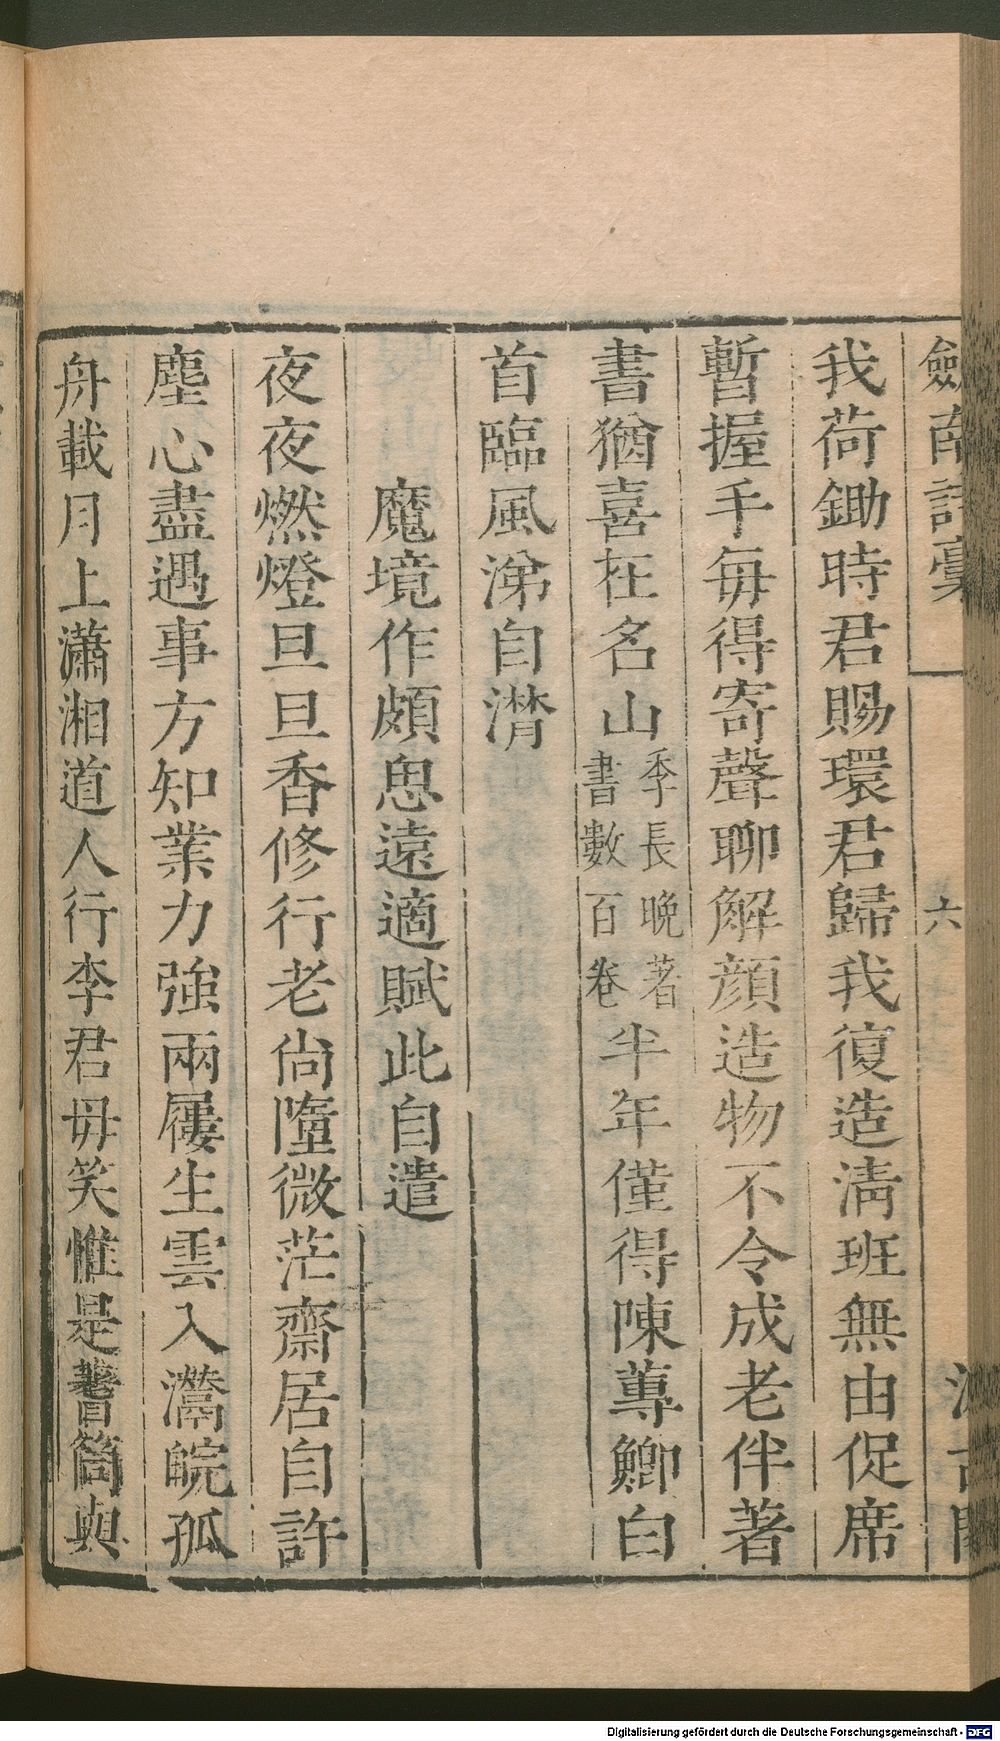 劒南詩稾
六
我荷鋤時君賜環君歸我復造淸班無由促席
暫握手每得寄聲聊解顏造物不令成老伴著
書猶喜在名山季長晚著書數百卷半年僅得陳蓴鯽白
首臨風涕自潸
魔境作頗思遠適賦此自遣
夜夜燃燈旦旦香修行老尙墮微茫齋居自許
塵心盡遇事方知業力強兩屨生雲入灊皖孤
舟載月上瀟湘道人行李君毋笑惟是蓍筒與
Digitalisierung gefördert durch die Deutsche Forschungsgemeinschaft - DFG